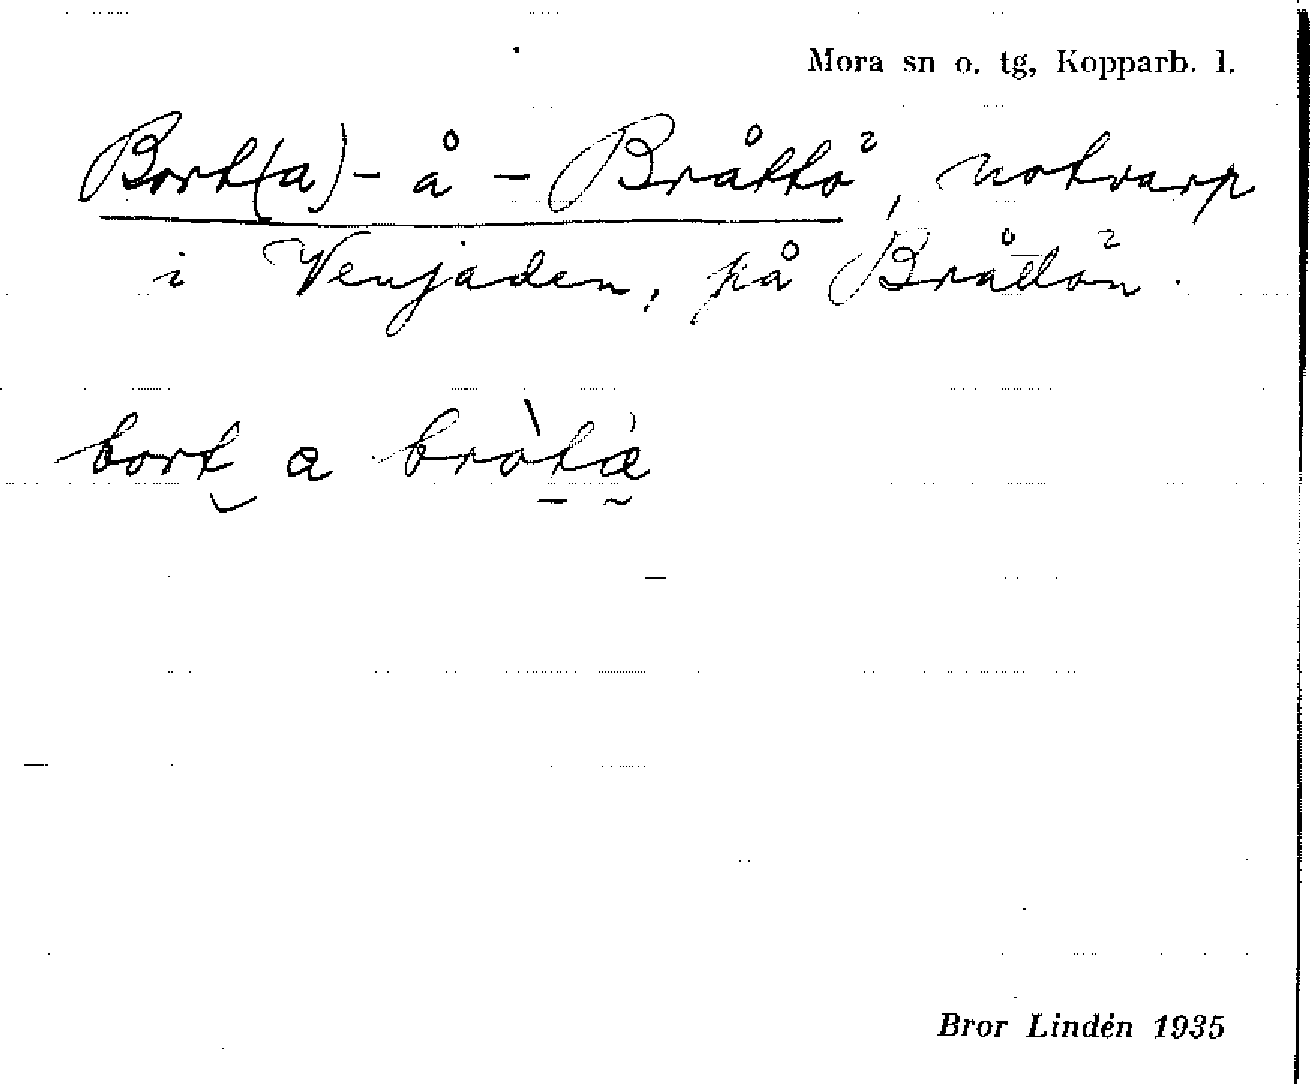 Mora sn o. tg, Kopparb. l.
Bort(a)-å-Bråttö, notvarp
i Venjaden, på Bråttön.
bort a bròtæ
Bror Lindén 1935